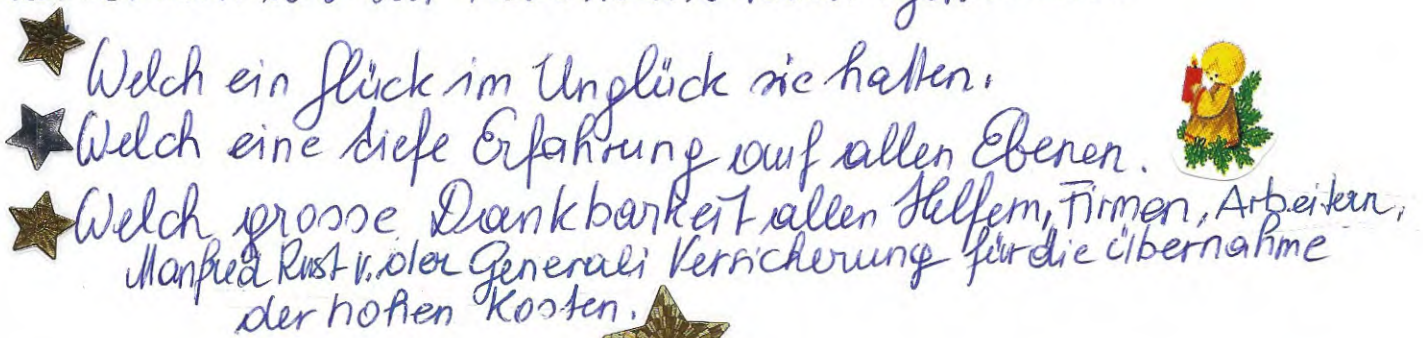 Welch ein Glück im Unglück sie hatten.
Welch eine tiefe Erfahrung auf allen Ebenen.
Welch grosse Dankbarkeit allen Helfern, Firmen, Arbeitern,
Manfred Rust v. der Generali Versicherung für die Übernahme
der hohen Kosten.